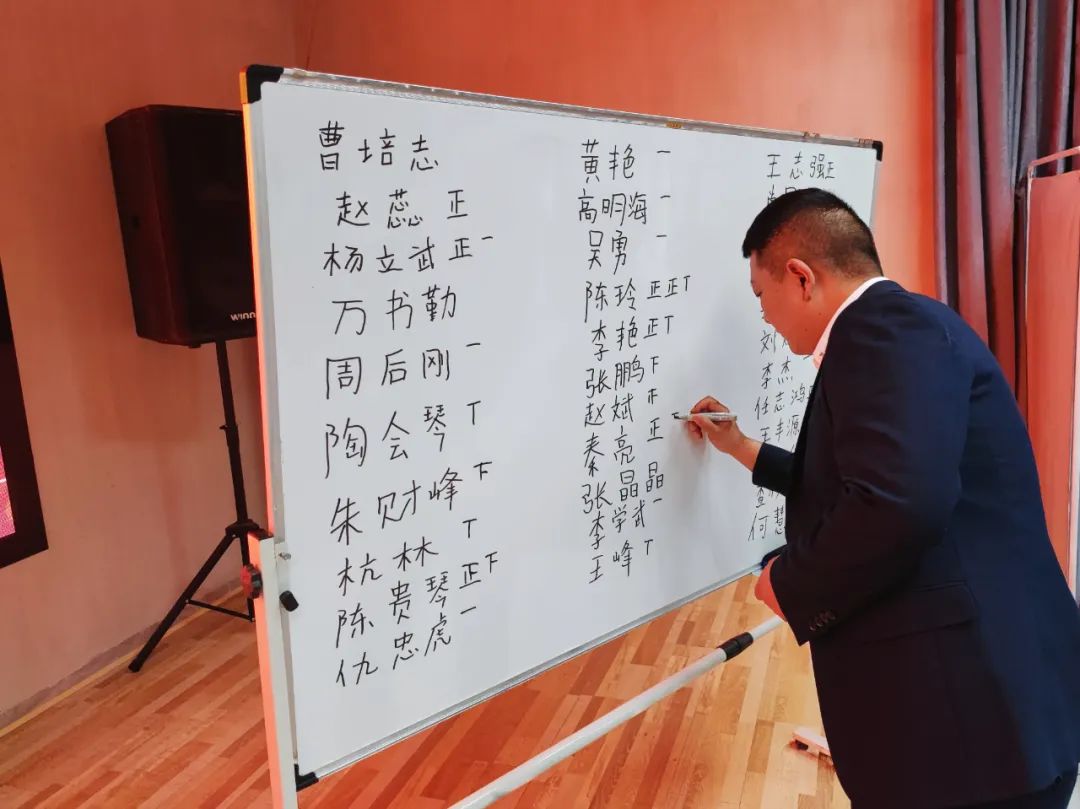 曹培志
赵蕊 正
杨立武 正一
万书勤
周后刚 一
陶会琴 丅
朱财峰 下
杭林 丅
陈贵琴 正下
仇忠虎 一
黄艳 一
高明海 一
吴勇 一
陈玲 正正丅
李艳 正丅
张鹏 下
赵斌
秦亮 正
张晶晶
李学武 一
王峰 丅
王志强 正
刘
李杰
任志鸿
王丰源
何慧